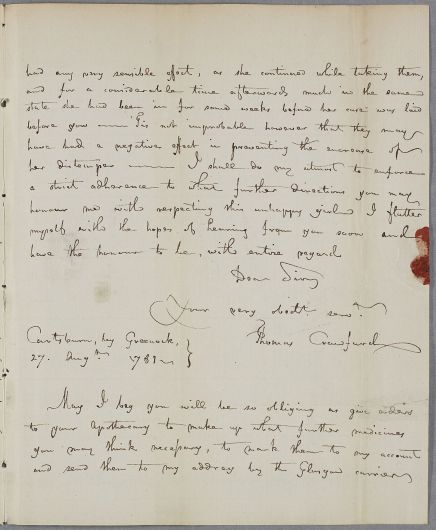 had any very sensible effect, as she continued while taking them,
and for a considerable time afterwards much in the same
state she had been in for some weeks before her case was laid
before you —— 'Tis not improbable however that they may
have had a negative effect in preventing the encrease of
her distemper —— I shall do my utmost to enforce
a strict adherence to what further directions you may
honour me with respecting this unhappy girl I flatter
myself with the hopes of hearing from you soon and
have the honour to be, with entire regard
Dear Sir,
Your very obedt. servt.
Cartsburn, by Greenock, Thomas Crawfurd
27. Augt. 1781
May I beg you will be so obliging as give orders
to your Apothecary to make up what further medicines
you may think necessary, to mark them to my account
and send them to my address by the Glasgow carrier